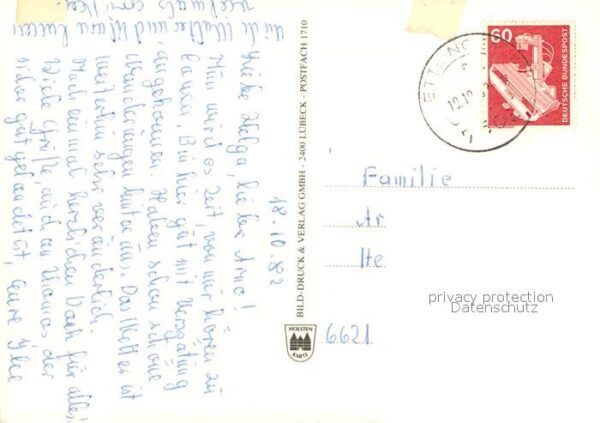 18.10.82
Liebe Helga, lieber Arno!
Nun wird es Zeit, von mir hören zu
lassen. Bin hier gut mit Verspätung
angekommen. Haben schon schöne
Wanderungen hinter uns. Das Wetter ist
weiterhin sehr veränderlich.
Noch einmal herzlichen Dank für alles.
Viele Grüße, auch an Thomas, der
sicher gut gelandet ist, Eure
BILD-DRUCK & VERLAG GMBH - 2400 LÜBECK - POSTFACH 1710
HOLSTEN
KARTE
60
DEUTSCHE BUNDESPOST
Familie
Ar
Ite
6621
privacy protection
Datenschutz